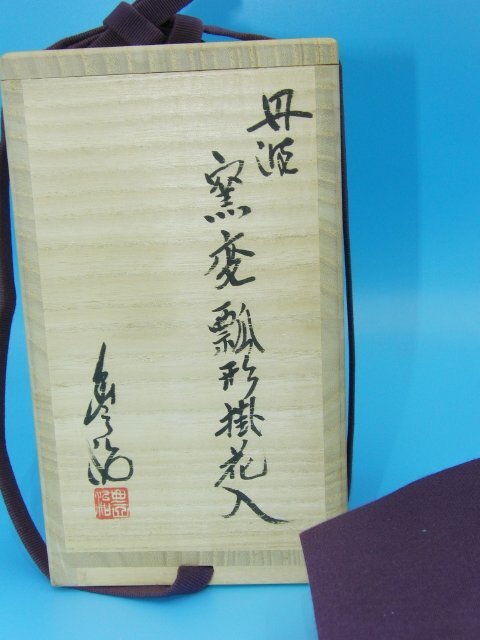 丹波
窯変瓢形掛花入